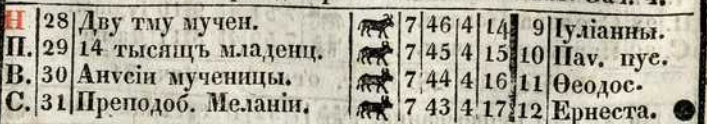 Н 28 Дву тму мучен. 7 46 4 14 9 Іуліанны.
П. 29 14 тысящъ младенц. 7 45 4 15 10 Пav. пус.
В. 30 Анѵсіи мученицы. 7 44 4 16 11 Ѳеодос.
С. 31 Преподоб. Меланіи. 7 43 4 17 12 Ернеста.